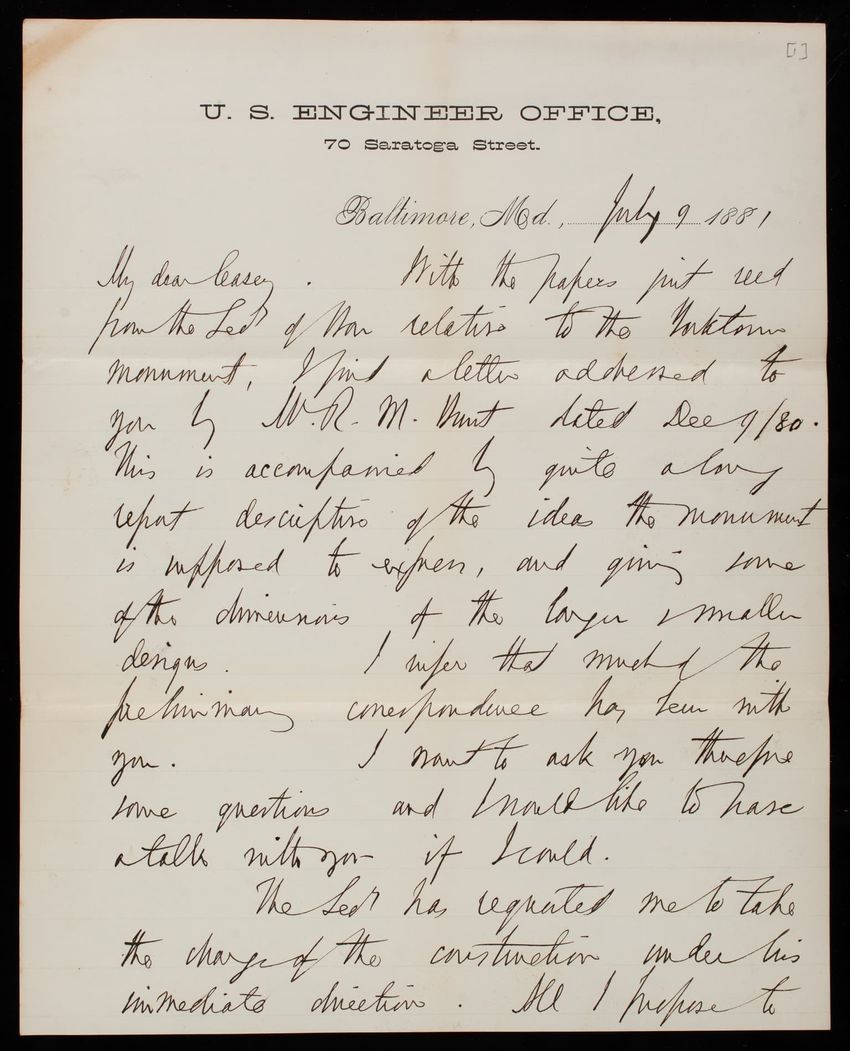 [1]
U. S. ENGINEER OFFICE,
70 Saratoga Street.
Baltimore, Md., July 9 1881
My dear Casey. With the papers just recd
from the Secy of War relative to the Yorktown
monument, I find a letter addressed to
you by Mr. R. M. Hunt dated Dec 9/80.
This is accompanied by quite a long
report descriptive of the ideas the monument
is supposed to express, and giving some
of the dimensions of the larger & smaller
designs. I infer that much of the
preliminary correspondence has been with
you. I want to ask you therefore
some questions and I would like to have
a talk with you if I could.
The Secy has requested me to take
the charge of the construction under his
immediate direction. All I propose to